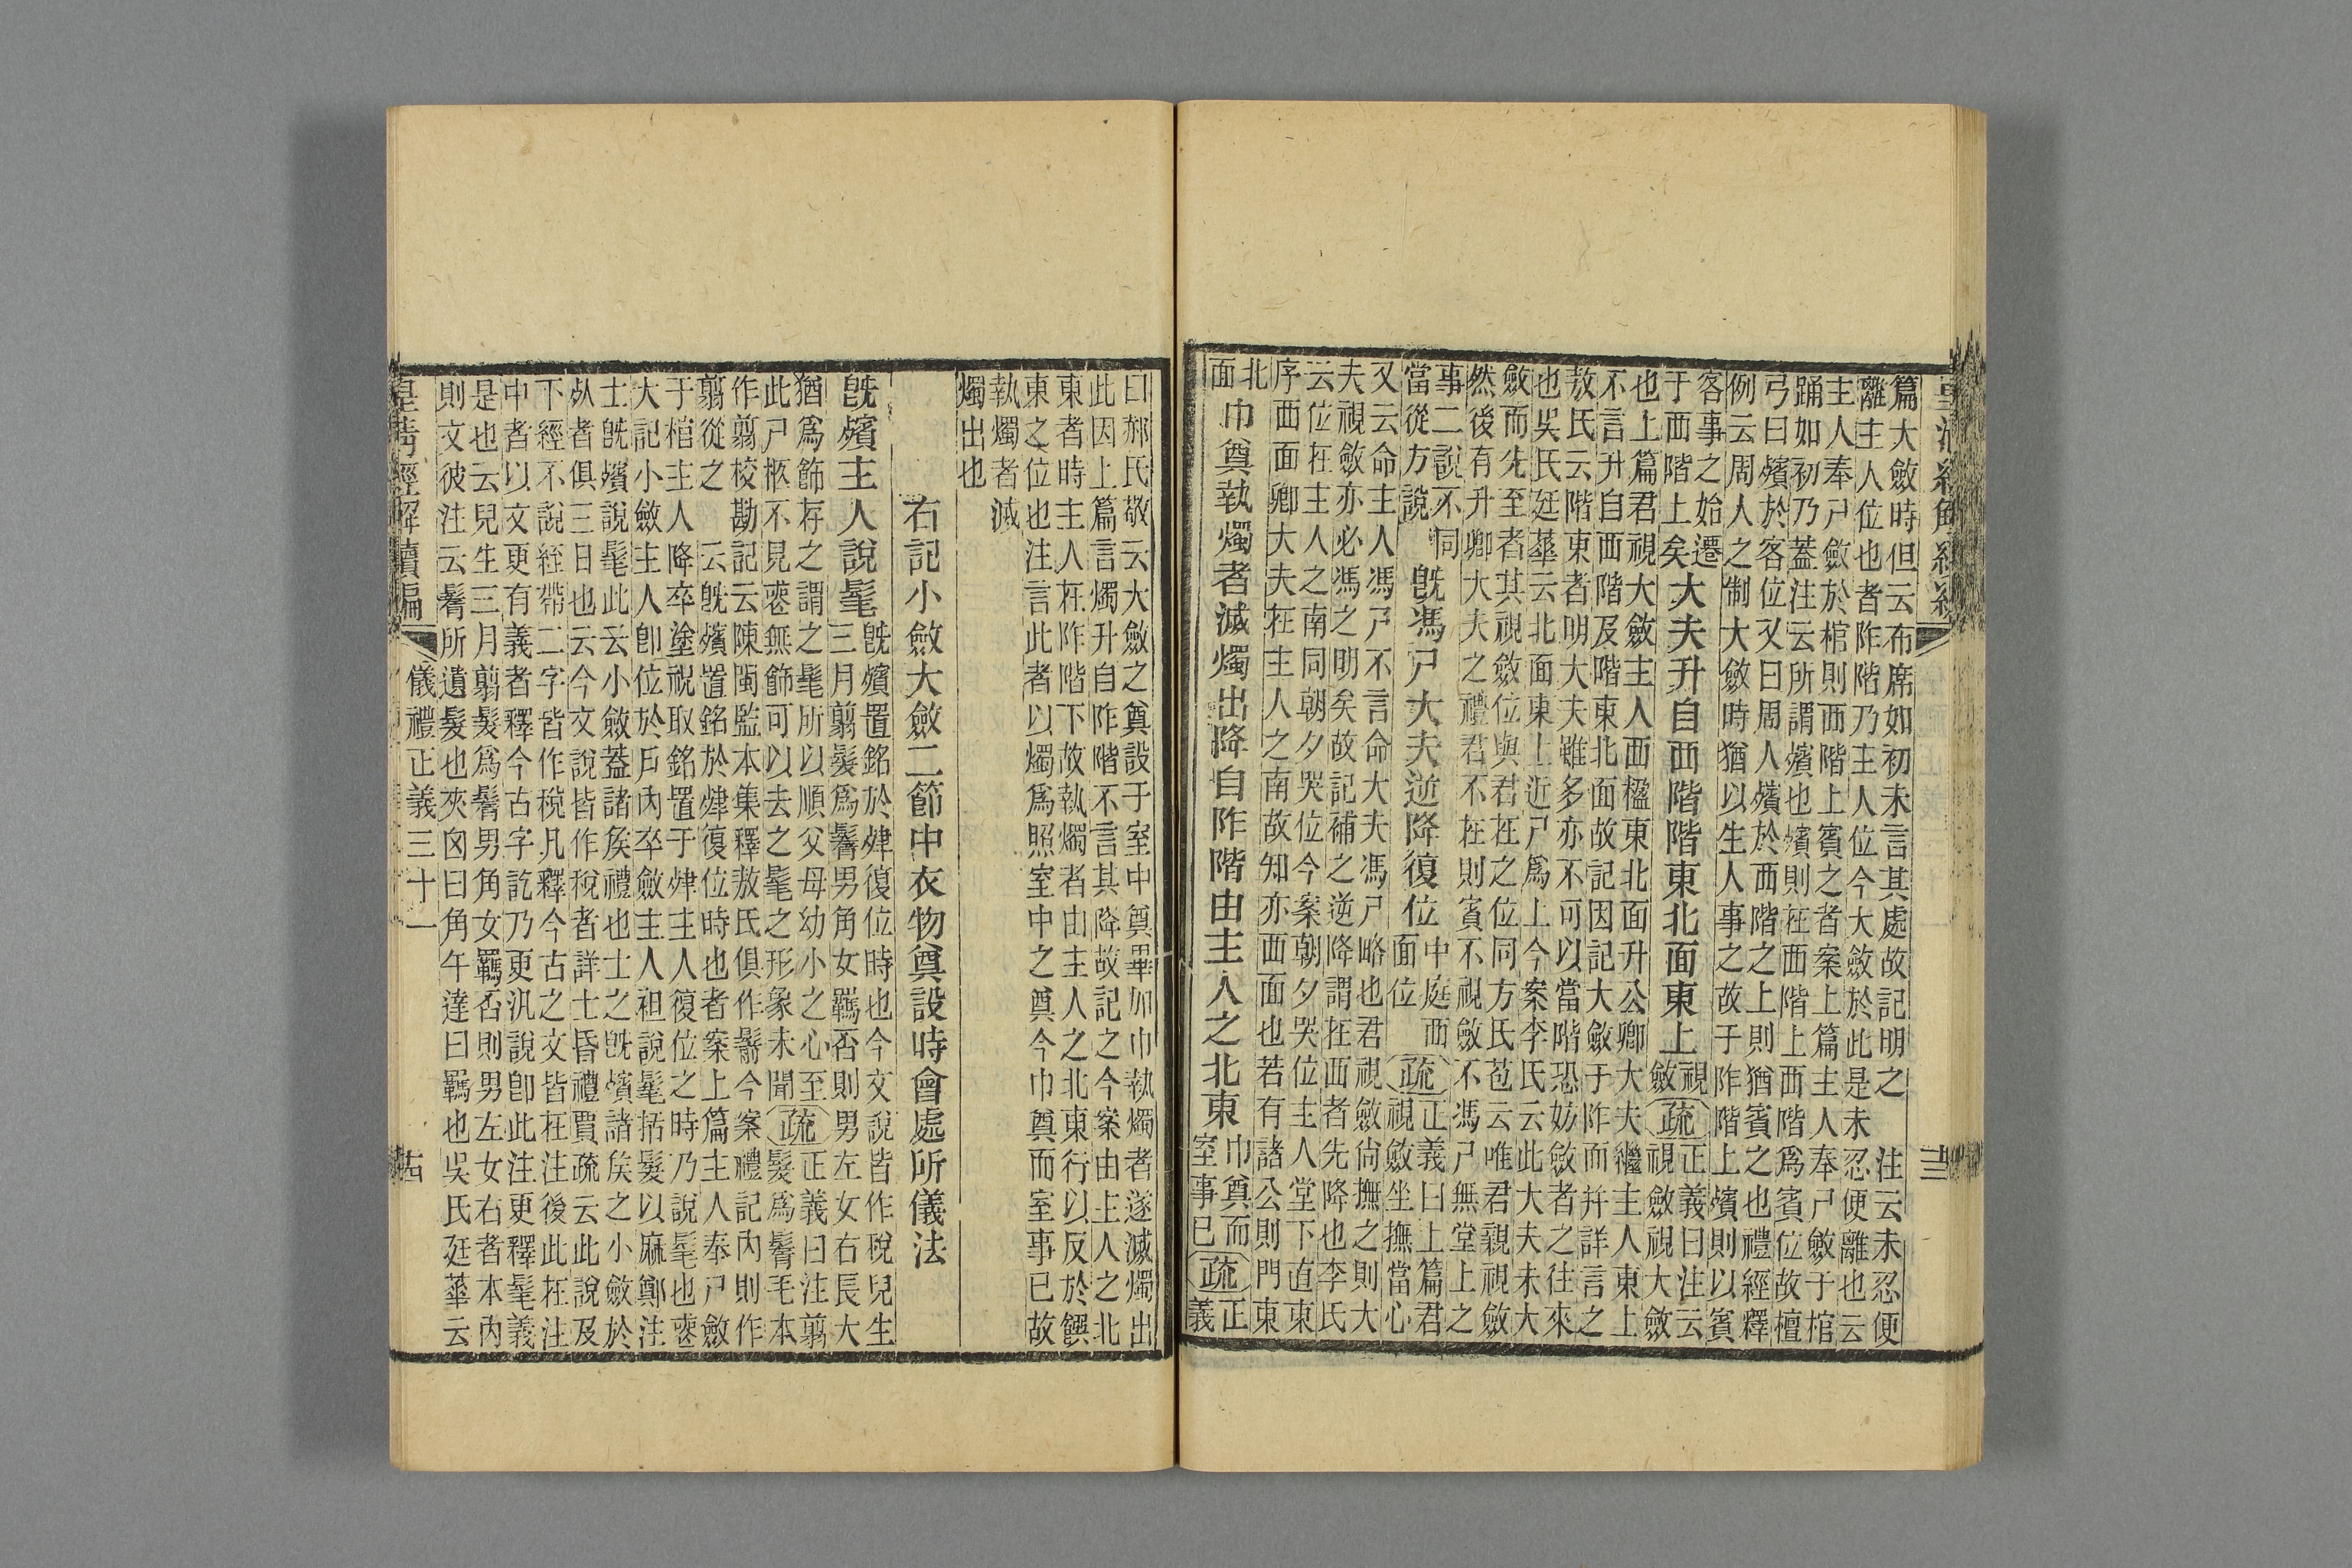 皇清經解續編
篇大斂時但云布席如初未言其處故記明之 注云未忍便
離主人位也者阼階乃主人位今大斂於此是未忍便離也云
主人奉尸斂於棺則西階上賓之者案上篇主人奉尸斂于棺
踊如初乃蓋注云所謂殯也殯則在西階上西階爲賓位故檀
弓曰殯於客位又曰周人殯於西階之上則猶賓之也禮經釋
例云周人之制大斂時猶以生人事之故于阼階上殯則以賓
客事之始遷
于西階上矣 大夫升自西階階東北面東上 視斂 疏 正義曰注云
視斂視大斂
也上篇君視大斂主人西楹東北面升公卿大夫繼主人東上
不言升自西階及階東北面故記因記大斂于阼而并詳言之
敖氏云階東者明大夫雖多亦不可以當階恐妨斂者之往來
也吳氏廷華云北面東上近尸爲上今案李氏云此大夫未大
斂而先至者其視斂位與君在之位同方氏苞云唯君親視斂
然後有升卿大夫之禮君不在則賓不視斂不馮尸無堂上之
事二說不同
當從方說 既馮尸大夫逆降復位 中庭西
面位 疏 正義曰上篇君
視斂坐撫當心
又云命主人馮尸不言命大夫馮尸略也君視斂尙撫之則大
夫視斂亦必馮之明矣故記補之逆降謂在西者先降也李氏
云位在主人之南同朝夕哭位今案朝夕哭位主人堂下直東
序西面卿大夫在主人之南故知亦西面也若有諸公則門東
北面 巾奠執燭者滅燭出降自阼階由主人之北東 巾奠而
室事已 疏 正義
曰郝氏敬云大斂之奠設于室中奠畢如巾執燭者遂滅燭出
此因上篇言燭升自阼階不言其降故記之今案由主人之北
東者時主人在阼階下故執燭者由主人之北東行以反於饌
東之位也注言此者以燭爲照室中之奠今巾奠而室事已故
執燭者滅
燭出也
右記小斂大斂二節中衣物奠設時會處所儀法
既殯主人說髦 既殯置銘於肂復位時也今文說皆作稅兒生
三月翦髮爲鬌男角女羈否則男左女右長大
猶爲飾存之謂之髦所以順父母幼小之心至
此尸柩不見喪無飾可以去之髦之形象未聞 疏 正義曰注翦
髮爲鬌毛本
作翦校勘記云陳閩監本集釋敖氏俱作鬋今案禮記內則作
翦從之 云既殯置銘於肂復位時也者案上篇主人奉尸斂
于棺主人降卒塗視取銘置于肂主人復位之時乃說髦也喪
大記小斂主人卽位於戶內卒斂主人袒說髦括髮以麻鄭注
士既殯說髦此云小斂蓋諸矦禮也士之既殯諸矦之小斂於
死者俱三日也云今文說皆作稅者詳士昏禮賈疏云此說及
下經不說絰帶二字皆作稅凡釋今古之文皆在注後此在注
中者以文更有義者釋今古字訖乃更汎說卽此注更釋髦義
是也云兒生三月翦髮爲鬌男角女羈否則男左女右者本內
則文彼注云鬌所遺髮也夾囟曰角午達曰羈也吳氏廷華云
儀禮正義三十一